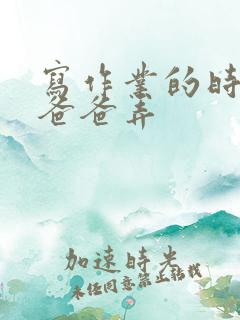 寫作業的時
爸爸弄
加速時光
未任同意禁止轉載